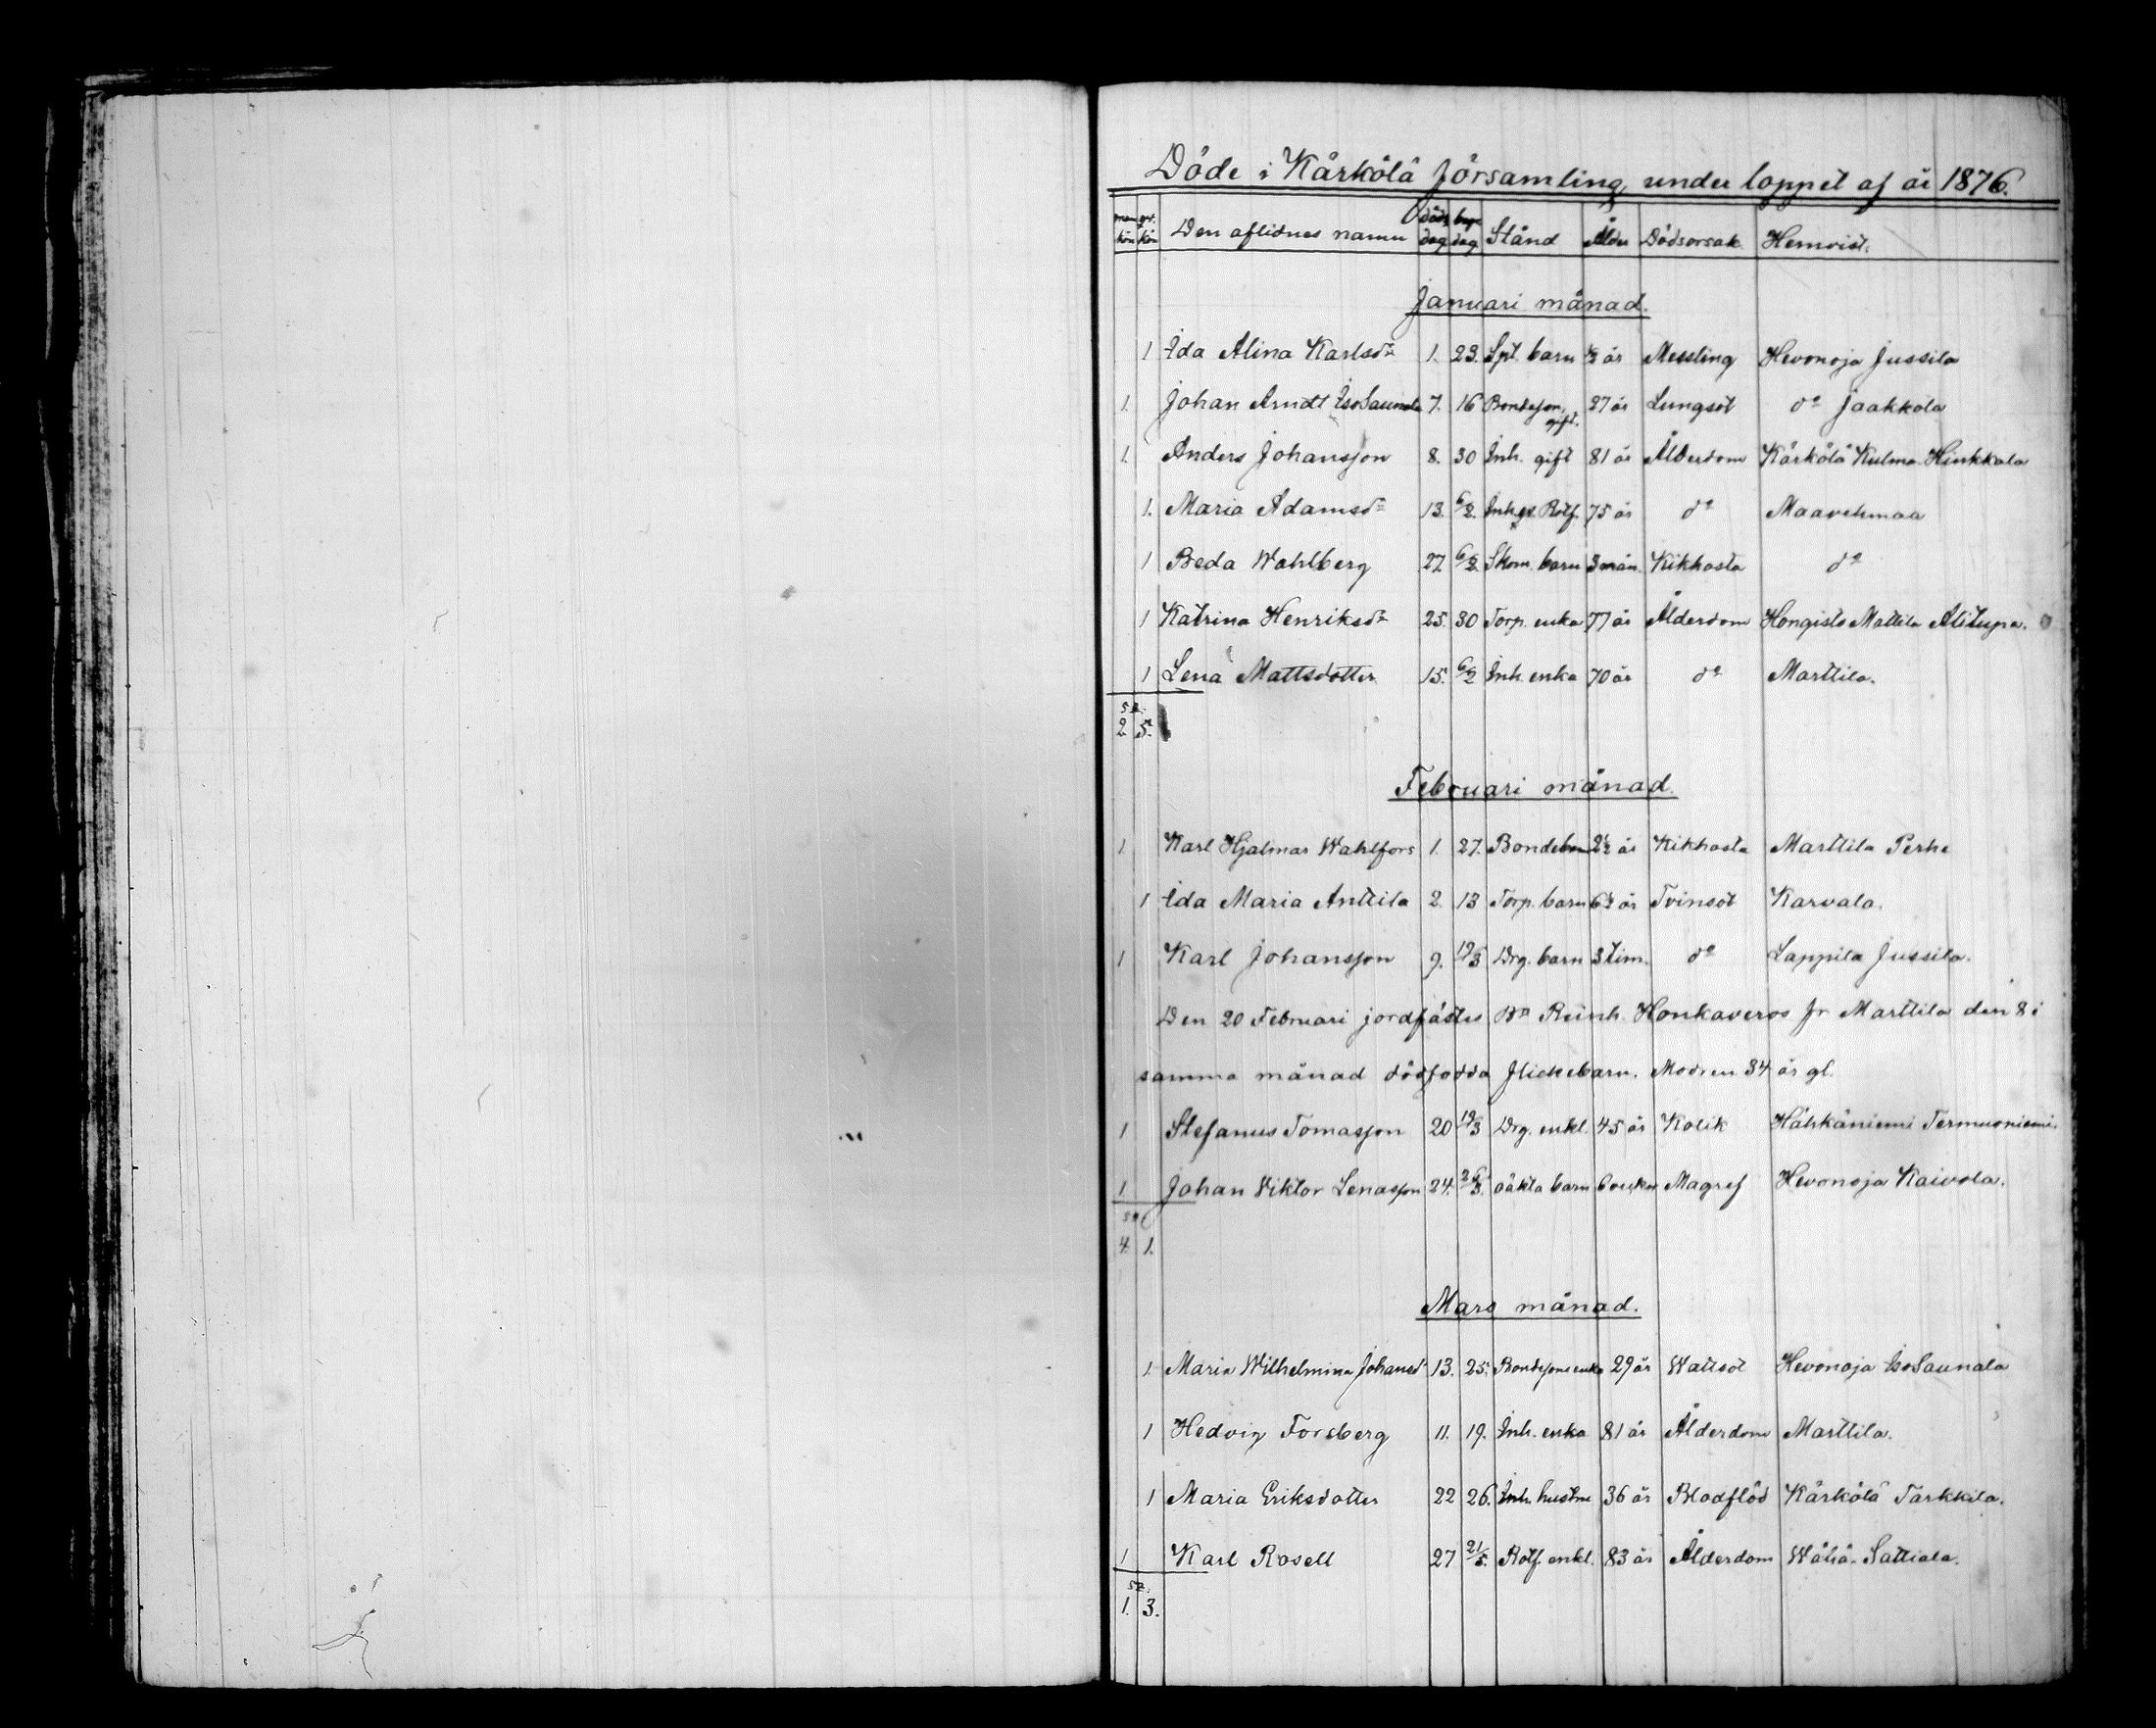 Döde i Kärkölä församling, under loppet af år 1876.
man kön qv. kön Den aflidnes namn Döds dag begr dag Stånd Ålder Dödsorsak Hemvist.
Januari månad.
1 Ida Alina Karlsdr 1. 23. Spl. barn ½ år Messling Hevonoja Jussila
1. Johan Arndt IsoSaunala 7. 16 Bondeson, gift. 27 år Lungsot do Jaakkola
1. Anders Johansson 8. 30 Inh. gift 81 år Ålderdom Kärkölä Kulma-Hinkkala
1. Maria Adamsdr 13. 6/2. Inh. Rotf. 75 år do Maavehmaa
1 Beda Wahlberg 27. 6/2. Skom. barn 3 mån. Kikhosta do
1 Katrina Henriksdr 25. 30 Torp. enka 77 år Ålderdom Hongisto Mattila Alitupa.
1 Lena Mattsdotter 15. 6/2 Inh. enka 70 år do Marttila.
Sa.
2 5.
Februari månad.
1. Karl Hjalmar Wahlfors 1. 27. Bondebarn 2½ år Kikhosta Marttila Perhe
1 Ida Maria Anttila 2. 13 Torp. barn 6½ år Tvinsot Karvala.
1 Karl Johansson 9. 19/3 Drg. barn 3 tim. do Lappila Jussila.
Den 20 Februari jordfästes Bn Reinh. Honkaveros fr Marttila den 8 i
samma månad dödfödda flickebarn. Modren 34 år gl.
1 Stefanus Tomasson 20 19/3 Drg. enkl. 45 år Kolik Hähkäniemi Termuoniemi.
1 Johan Viktor Lenasson 24. 26/3. oäkta barn 6 veckor Magref Hevonoja Kaivola.
Sa
4 1.
Mars månad.
1. Maria Wilhelmina Johansdr 13. 25. Bondesons enka 29 år Wattsot Hevonoja IsoSaunala
1 Hedvig Forsberg 11. 19. Inh. enka 81 år Ålderdom Marttila.
1 Maria Eriksdotter 22 26. Inh. hustru 36 år Blodflöd Kärkölä Tarkkila.
1 Karl Rosell 27 21/5. Rotf. enkl. 83 år Ålderdom Wähä-Sattiala.
Sa.
1. 3.